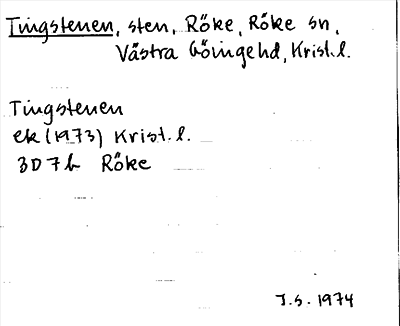 Tingstenen, sten, Röke, Röke sn,
Västra Göingehd, Krist.l.
Tingstenen
ek (1973) Krist.l.
3D7b Röke
J.S. 1974